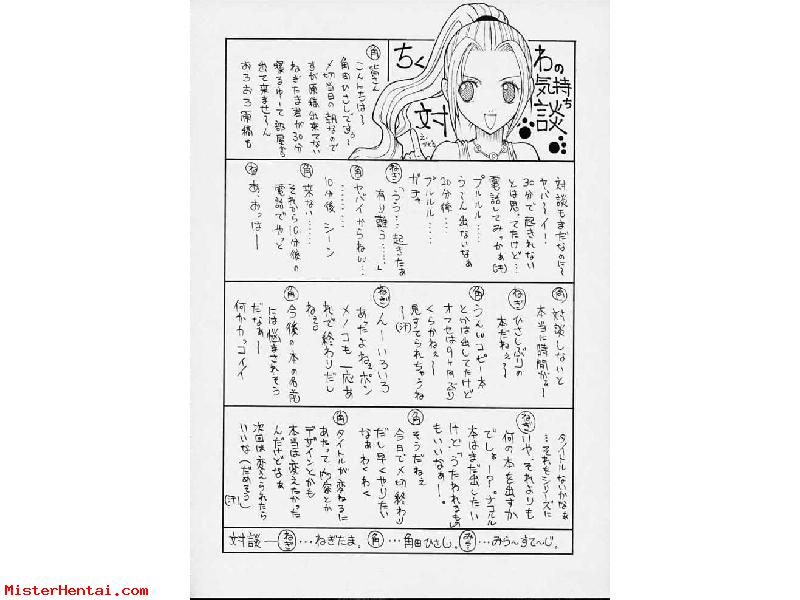 ちく
わの
気持ち
対談
角 皆さん
こんにちは〜
角田ひさしですぅ。
〆切当日の朝なので
すが原稿出来てない
ねぎたま君が30分
寝るゆーて部屋から
出て来ませ〜ん
おろおろ原稿も
対談もまだなのに〜
ヤバーイー!
30分で起きれない
とは思ってたけど…
電話してみっかぁ(汗)
プルルル……
う〜ん出ないなぁ
20分後…
プルルル……
ガチャ
ねぎ 「うう…起きたぁ
有り難う……」
角 ヤバイからねん…
………
10分後 シーン
角 来ない……
それから10分後の
電話でやっと
ね あ、おっはー
角 対談しないと
本当に時間が…
ねぎ ひさしぶりの
本だねぇ〜
角 うんコピー本
とかは出してたけど
オフセは9ヶ月ぶり
くらかねぇ〜
見すてられちゃうね
〜(汗)
ねぎ ん〜いろいろ
あったよねぇポン
メノコも一応あ
れで終わりだし
ねぇ
角 今後の本の名前
には悩まされそう
だなぁー
何かカッコイイ
タイトルないかなぁ
…それもシリーズに
ねぎ いや、それよりも
何の本を出すか
でしょ!?ナコルル
本はまだ出したい
けど「うたわれるもの」
もいいなぁー。
角 そうだねぇ
今日で〆切終わり
だし早くやりたい
なぁわくわく
角 タイトルが変わるに
あたって内容とか
デザインとかも
本当は変えたかった
んだけどなぁ
次回は変えられたら
いいな(だめそう)
(汗)
対談—ねぎ…ねぎたま。角…角田ひさし。みう…みう〜すて〜じ。
MisterHentai.com